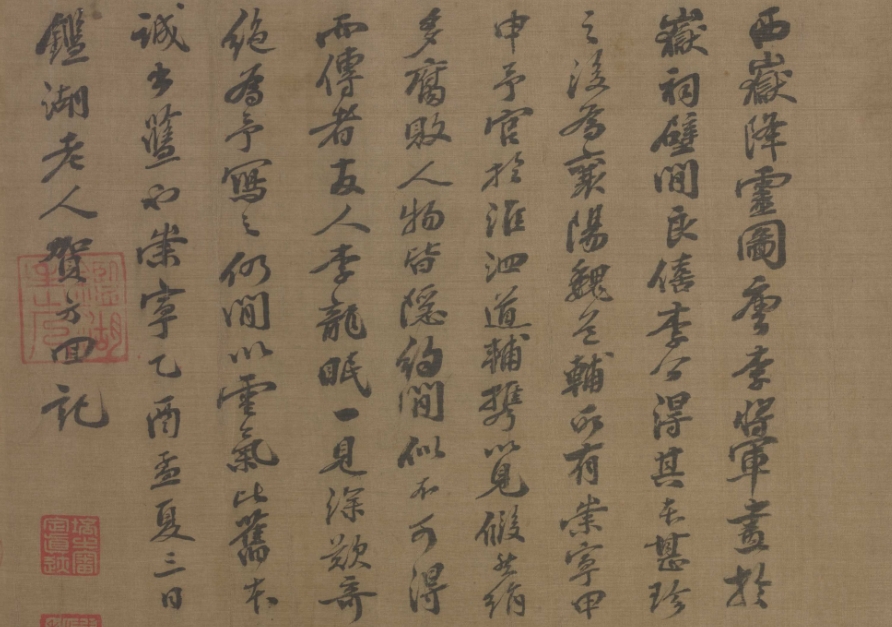 西嶽降靈圖唐李將軍畫於
嶽祠壁間良僖李公得其本甚珍
之後為襄陽魏道輔所有崇寧甲
申予官於淮泗道輔攜以見假然絹
多腐敗人物皆隱約間似不可得
而傳者友人李龍眠一見深歎奇
絕為予寫之仍間以雲氣比舊本
誠出藍也崇寧乙酉孟夏三日
鑑湖老人賀方回記